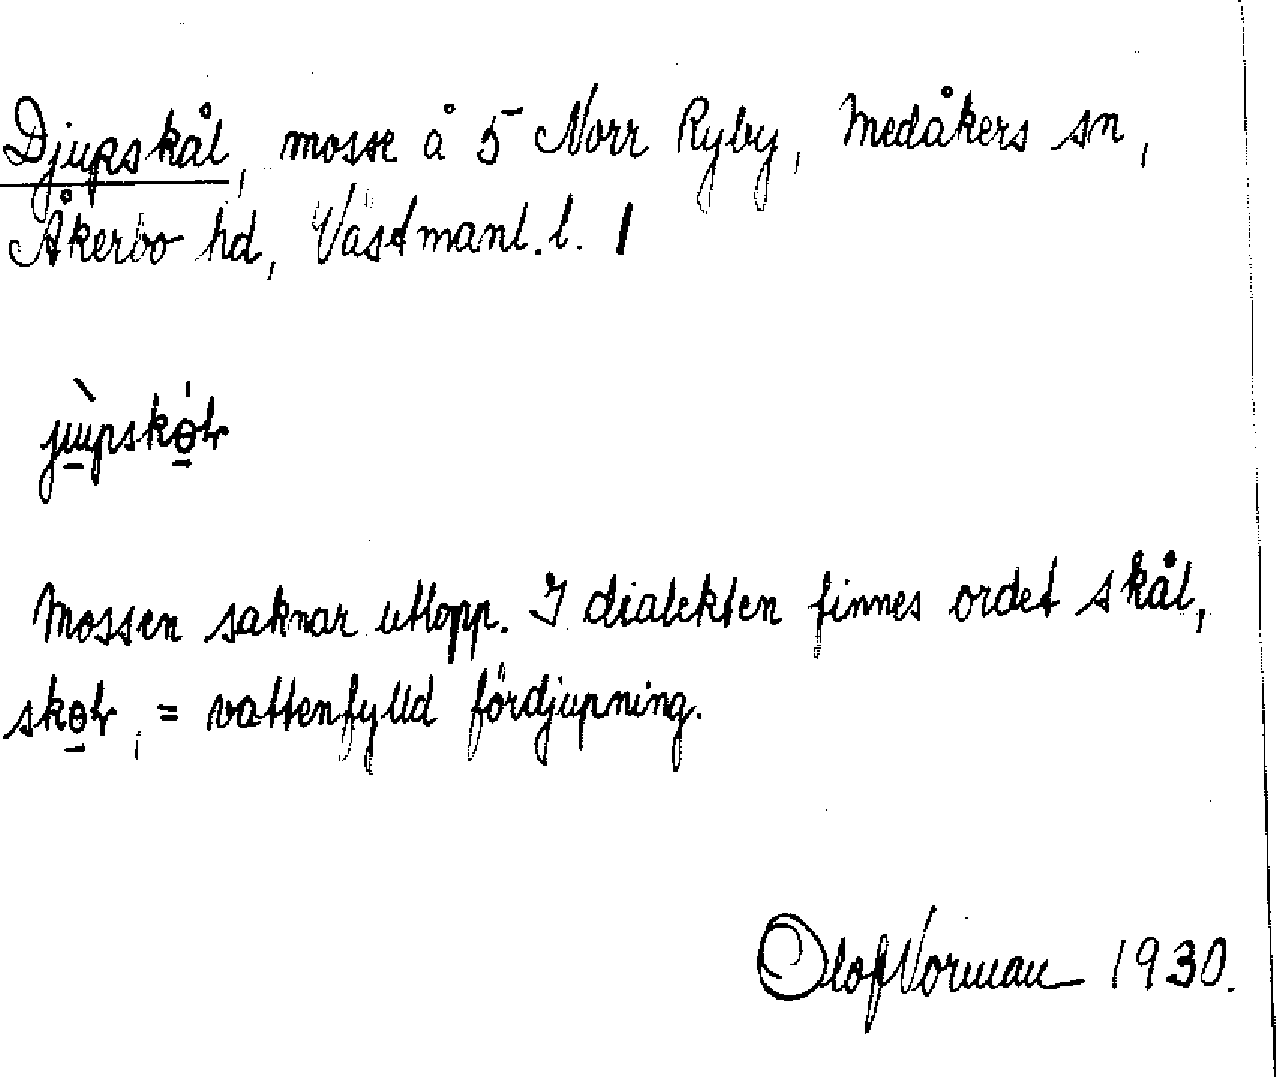 Djupskål, mosse å 5 Norr Ryby, Medåkers sn,
Åkerbo hd, Västmanl. l. 1
Mossen saknar utlopp. I dialekten finnes ordet skål,
= vattenfylld fördjupning.
Olof Norman 1930.